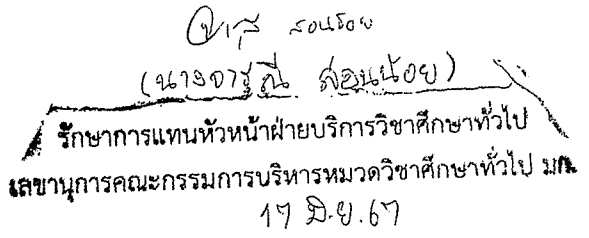 สอนน้อย
(นางจารุณี สอนน้อย)
รักษาการแทนหัวหน้าฝ่ายบริการวิชาศึกษาทั่วไป
เลขานุการคณะกรรมการบริหารหมวดวิชาศึกษาทั่วไป มก.
17 มิ.ย. 67